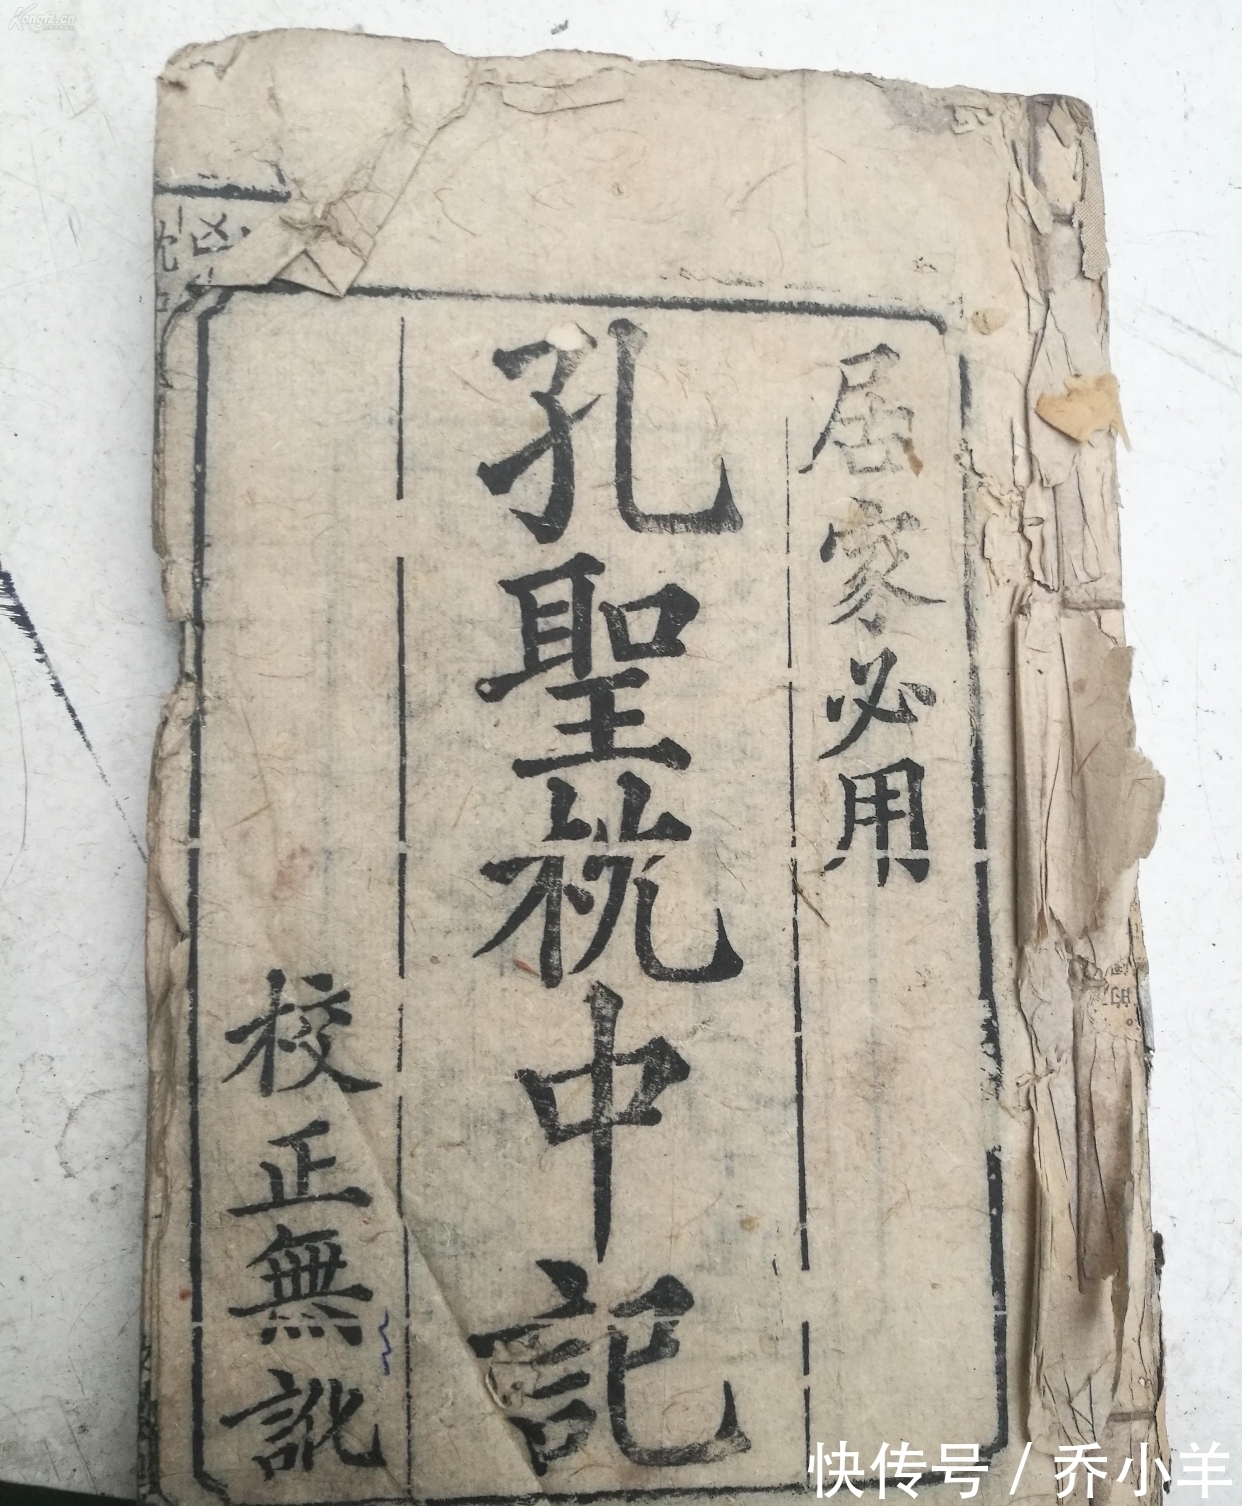 Kongfz.cn
居家必用
孔聖枕中記
校正無訛
凶
快传号 / 乔小羊